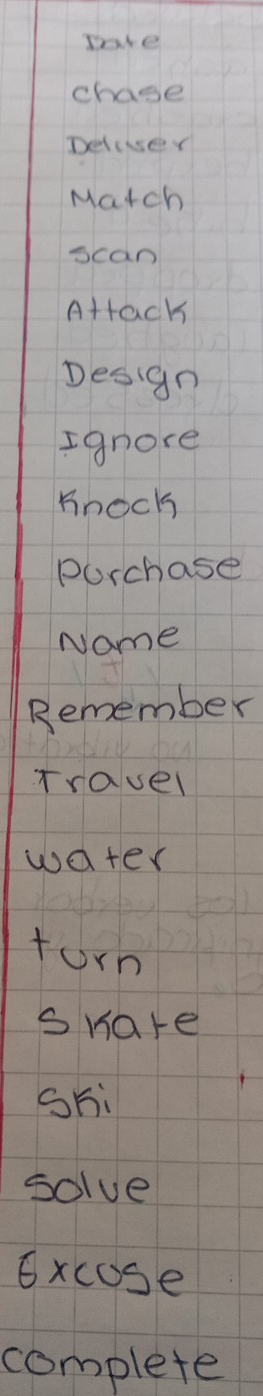 Date
chase
Deliver
Match
scan
Attack
Design
Ignore
Knock
purchase
Name
Remember
Travel
water
turn
skate
Ski
solve
Excuse
complete